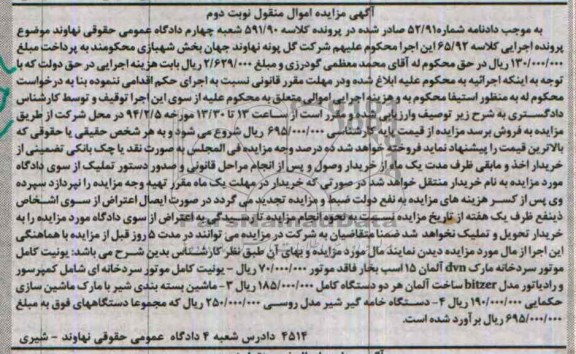 آگهی مزایده اموال منقول نوبت دوم
به موجب دادنامه شماره ۵۲/۹۱ صادر شده در پرونده کلاسه ۵۹۱/۹۰ شعبه چهارم دادگاه عمومی حقوقی نهاوند موضوع
پرونده اجرایی کلاسه ۶۵/۹۲ این اجرا محکوم علیهم شرکت گل پونه نهاوند جهان بخش شهبازی محکومند به پرداخت مبلغ
۱۳۰/۰۰۰/۰۰۰ ریال در حق محکوم له آقای محمد معظمی گودرزی و مبلغ ۲/۶۲۹/۰۰۰ ریال بابت هزینه اجرایی در حق دولت که با
توجه به اینکه اجرائیه به محکوم علیه ابلاغ شده ودر مهلت مقرر قانونی نسبت به اجرای حکم اقدامی ننموده بنا به درخواست
محکوم له به منظور استیفا محکوم به و هزینه اجرایی اموالی متعلق به محکوم علیه از سوی این اجرا توقیف و توسط کارشناس
دادگستری به شرح زیر توصیف وارزیابی شده و مقرر است از ساعت ۱۳ تا ۱۳/۳۰ مورخه ۹۴/۲/۵ در محل شرکت از طریق
مزایده به فروش برسد مزایده از قیمت پایه کارشناسی ۶۹۵/۰۰۰/۰۰۰ ریال شروع می شود و به هر شخص حقیقی یا حقوقی که
بالاترین قیمت را پیشنهاد نماید فروخته خواهد شد ده درصد وجه مزایده فی المجلس به صورت نقد یا چک بانکی تضمینی از
خریدار اخذ و مابقی ظرف مدت یک ماه از خریدار وصول و پس از انجام مراحل قانونی و صدور دستور تملیک از سوی دادگاه
مورد مزایده به نام خریدار منتقل خواهد شد در صورتی که خریدار در مهلت یک ماه مقرر تهیه وجه مزایده را نپردازد سپرده
وی پس از کسر هزینه های مزایده به نفع دولت ضبط و مزایده تجدید می گردد در صورت ایصال اعتراض از سوی اشخاص
ذینفع ظرف یک هفته از تاریخ مزایده نسبت به نحوه انجام مزایده تا رسیدگی به اعتراض از سوی دادگاه مورد مزایده را به
خریدار تحویل و تملیک نخواهد شد ضمنا متقاضیان به شرکت در مزایده می توانند در مدت ۵ روز قبل از مزایده با هماهنگی
این اجرا از مال مورد مزایده دیدن نمایند مال مورد مزایده و بهای آن طبق نظر کارشناس بدین شرح می باشد: یونیت کامل
موتور سردخانه مارک dvn آلمان ۱۵ اسب بخار فاقد موتور ۷۰/۰۰۰/۰۰۰ ریال - یونیت کامل موتور سردخانه ای شامل کمپرسور
و رادیاتور مدل bitzer ساخت آلمان هر دو دستگاه کامل ۱۸۵/۰۰۰/۰۰۰ ریال ۳- ماشین بسته بندی شیر با مارک ماشین سازی
حکمایی ۱۹۰/۰۰۰/۰۰۰ ریال ۴- دستگاه خامه گیر شیر مدل روسی ۲۵۰/۰۰۰/۰۰۰ ریال که مجموعا دستگاههای فوق به مبلغ
۶۹۵/۰۰۰/۰۰۰ ریال برآورد شده است.
۴۵۱۴ دادرس شعبه ۴ دادگاه عمومی حقوقی نهاوند - شیری